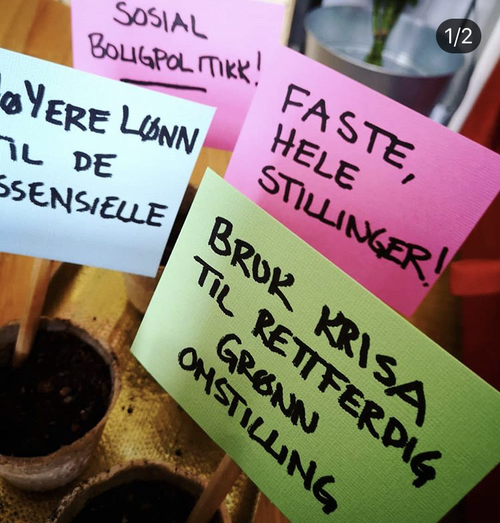 1/2
SOSIAL
BOLIGPOLITIKK!
ØYERE LØNN
TIL DE
SSENSIELLE
FASTE,
HELE
STILLINGER!
BRUK KRISA
TIL RETTFERDIG
GRØNN
OMSTILLING